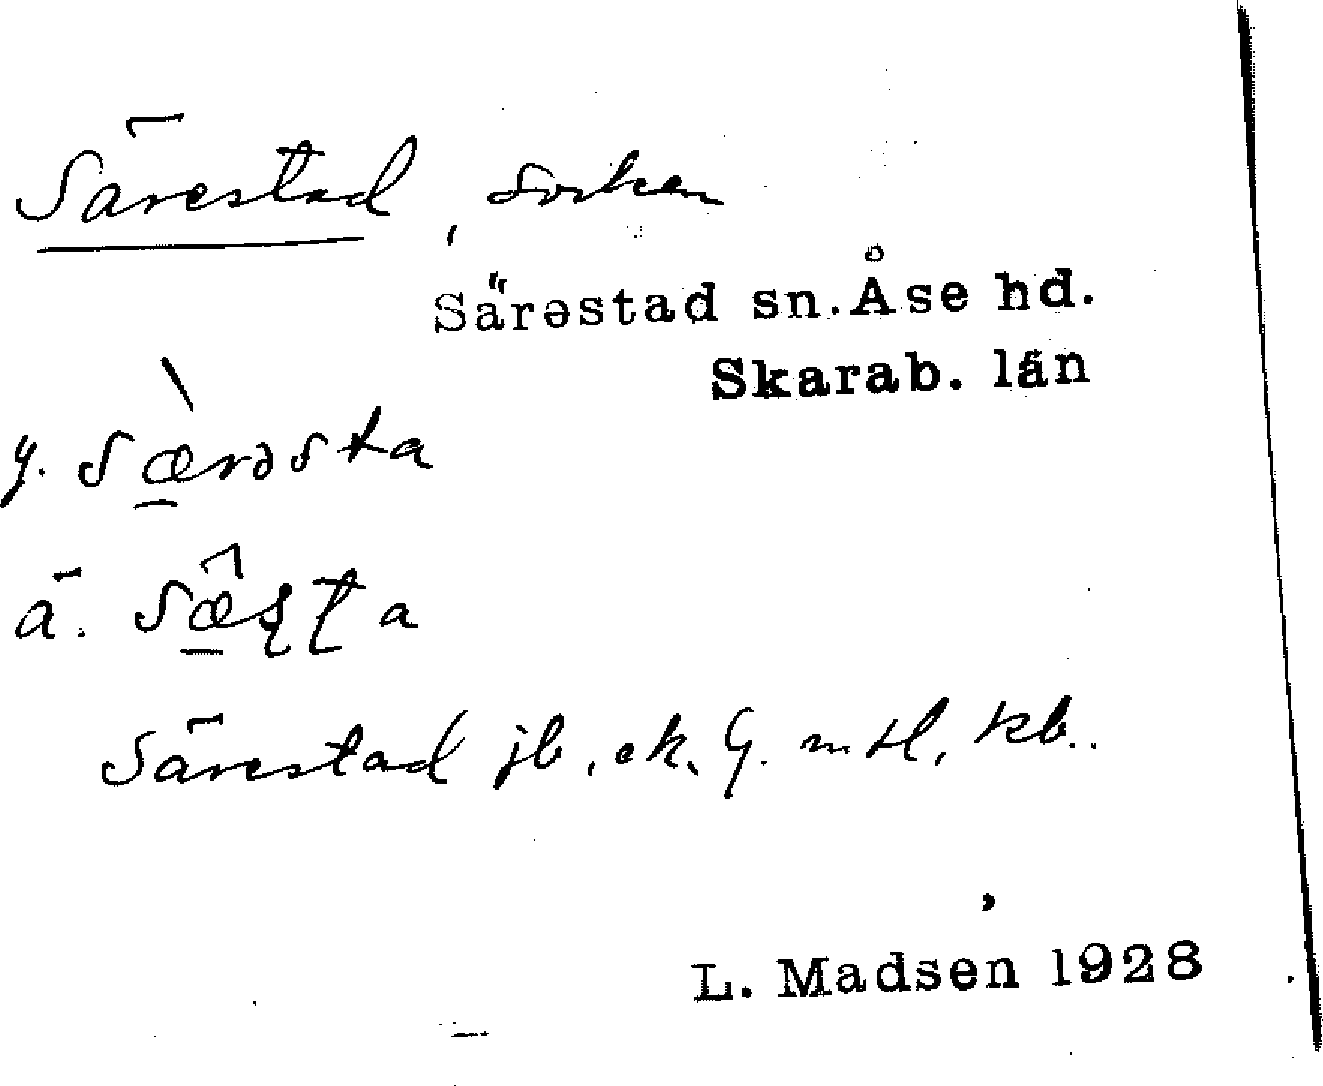 Särestad, socken
Särestad sn. Åse hd.
Skarab. län
y. sæ̀rəsta
ä. sæ̂ʂʈa
Särestad jb, ek, G. mtl, kb..
L. Madsen 1928